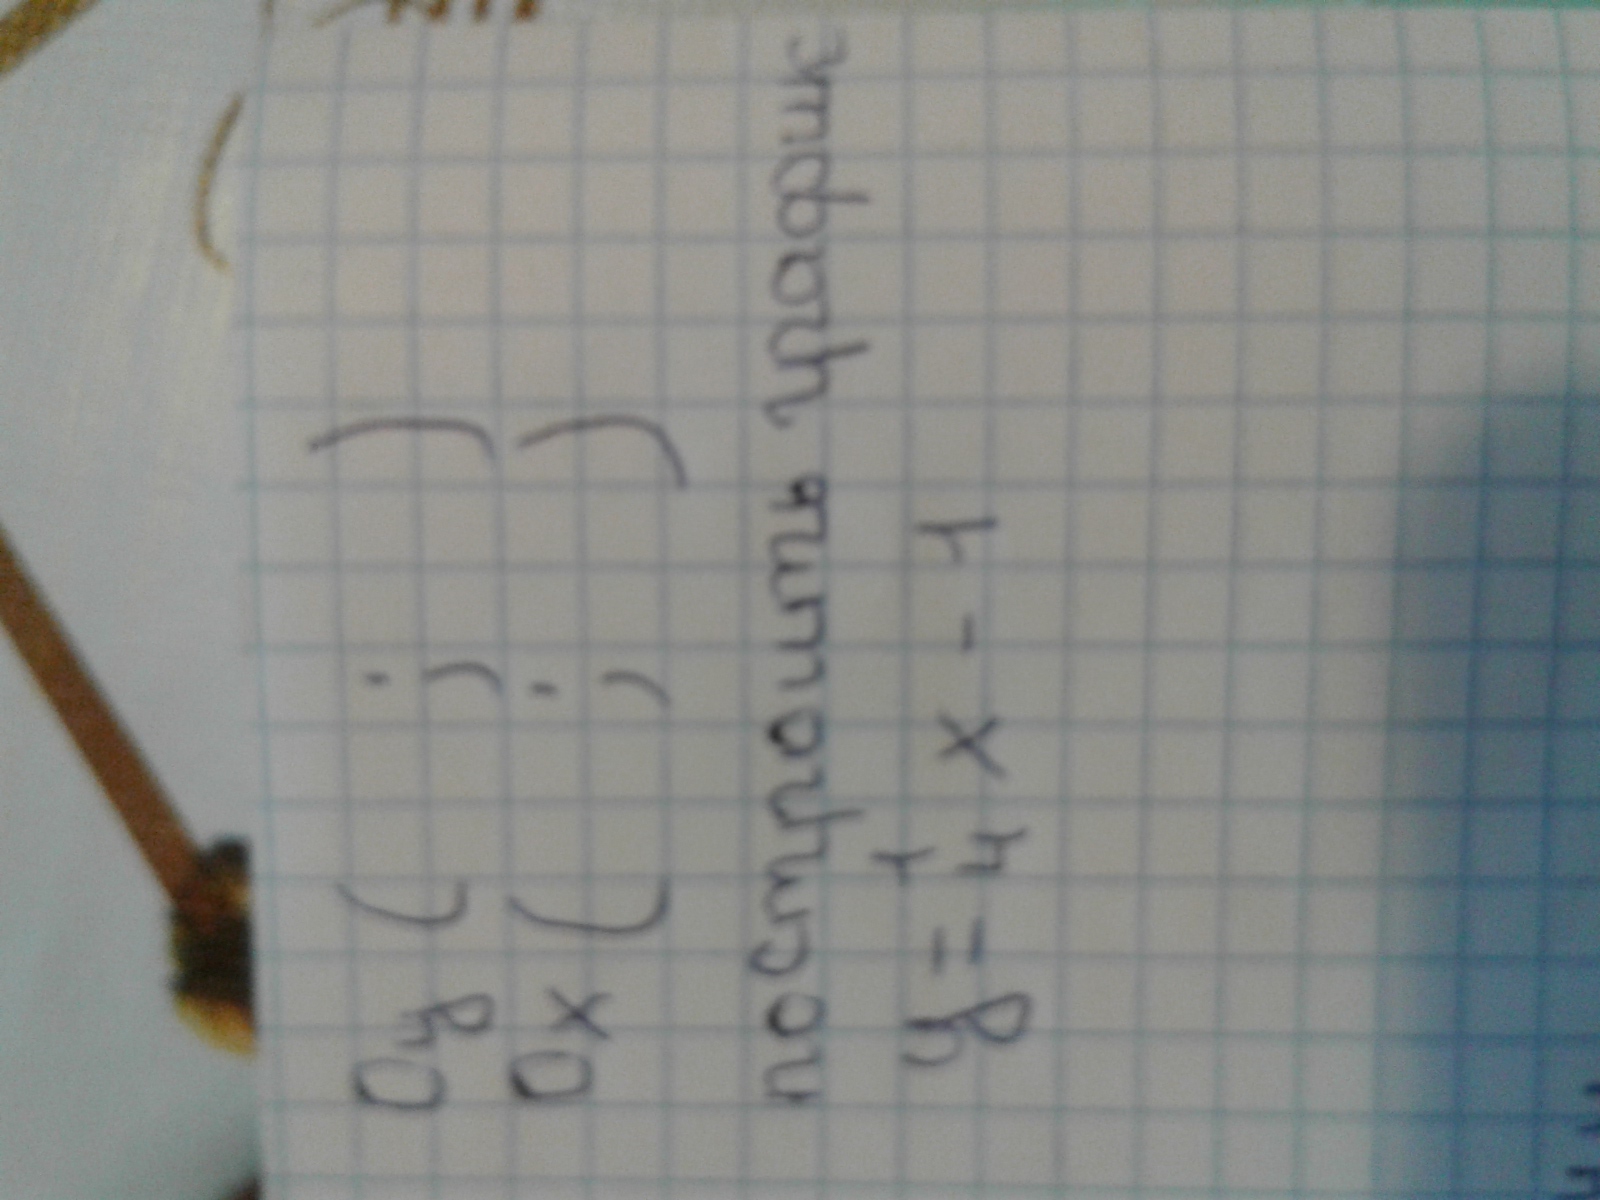 Oy ( ; )
Ox ( ; )
построить график
y = 1/4 x - 1